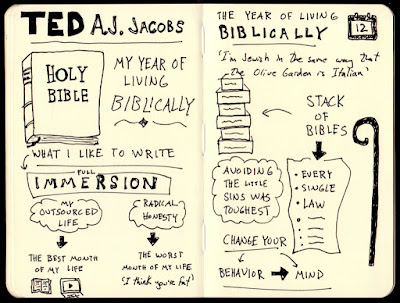 TED A.J. JACOBS
HOLY
BIBLE
MY YEAR OF
LIVING
BIBLICALLY
WHAT I LIKE TO WRITE
FULL
IMMERSION
MY
OUTSOURCED
LIFE
RADICAL
HONESTY
THE BEST MONTH
OF MY LIFE
THE WORST
MONTH OF MY LIFE
"I think you're fat"
THE YEAR OF LIVING
BIBLICALLY
12
'I'm Jewish in the same way that
the Olive Garden is Italian'
STACK
OF
BIBLES
AVOIDING
THE LITTLE
SINS WAS
TOUGHEST
• EVERY
• SINGLE
• LAW
CHANGE YOUR
BEHAVIOR → MIND